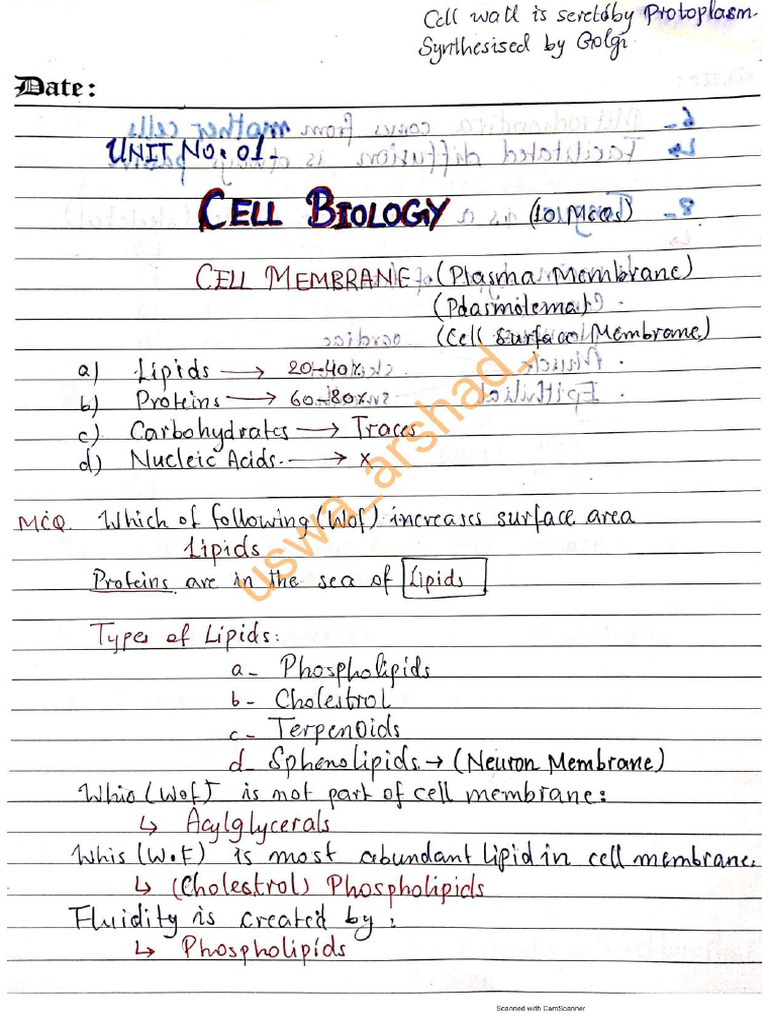 Cell wall is seretd by Protoplasm.
Synthesised by Golgi
Date:
UNIT No: 01-
CELL BIOLOGY (10 MCQs)
CELL MEMBRANE (Plasma Membrane)
(Pdasmolema)
(Cell Surface Membrane)
a) Lipids → 20-40%
b) Proteins → 60-80%
c) Carbohydrates → Traces
d) Nucleic Acids. → x
MCQ. Which of following (Wof) increases surface area
Lipids
Proteins are in the sea of Lipids
Types of Lipids:
a- Phospholipids
b- Cholestrol
c- Terpenoids
d- Sphenolipids → (Neuron Membrane)
Whio (Wof) is not part of cell membrane:
↳ Acylglycerals
Whis (W.F) is most abundant lipid in cell membrane.
↳ (Cholestrol) Phospholipids
Fluidity is created by:
↳ Phospholipids
uswa_arshad_
Scanned with CamScanner